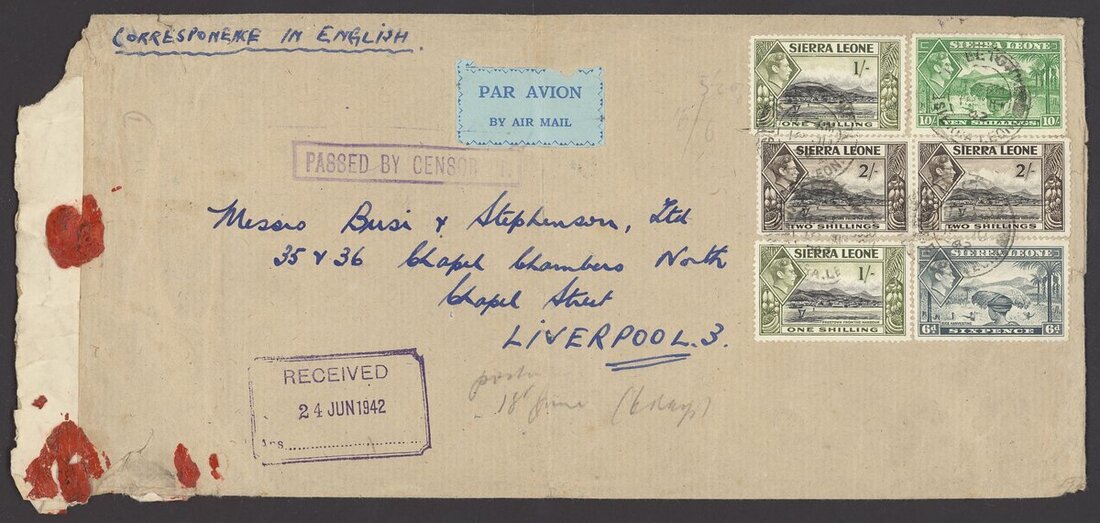 CORRESPONENCE IN ENGLISH.
PAR AVION
BY AIR MAIL
PASSED BY CENSOR
Messrs Busi & Stephenson, Ltd
35 & 36 Chapel Chambers North
Chapel Street
LIVERPOOL.3.
RECEIVED
24 JUN 1942
Ans.
18 June (6 days)
SIERRA LEONE
1/-
ONE SHILLING
SIERRA LEONE
10/-
TEN SHILLINGS
10/-
SIERRA LEONE
2/-
TWO SHILLINGS
SIERRA LEONE
2/-
TWO SHILLINGS
SIERRA LEONE
1/-
FREETOWN FROM THE HARBOUR
ONE SHILLING
SIERRA LEONE
RICE HARVESTING
6d
SIXPENCE
6d